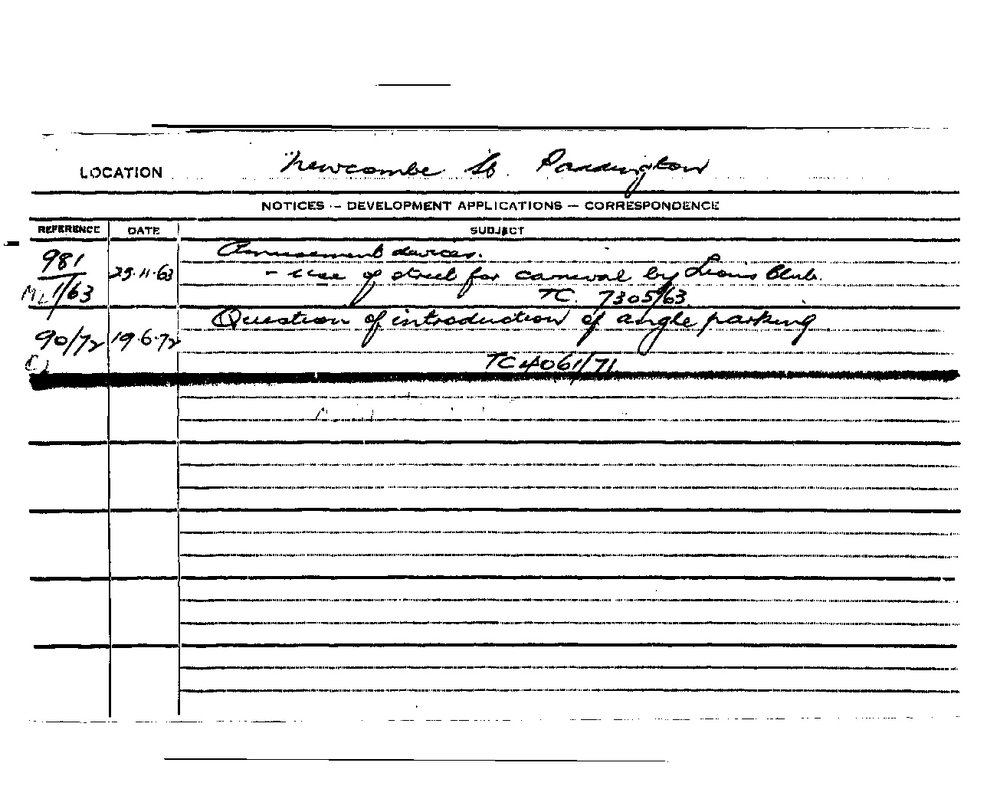 LOCATION Newcombe St. Paddington
NOTICES — DEVELOPMENT APPLICATIONS — CORRESPONDENCE
REFERENCE DATE SUBJECT
Amusement devices.
981 25.11.63 - use of street for carnival by Lions Club.
1/63 TC. 7305/63.
Question of introduction of angle parking
90/72 19.6.72
TC 4061/71